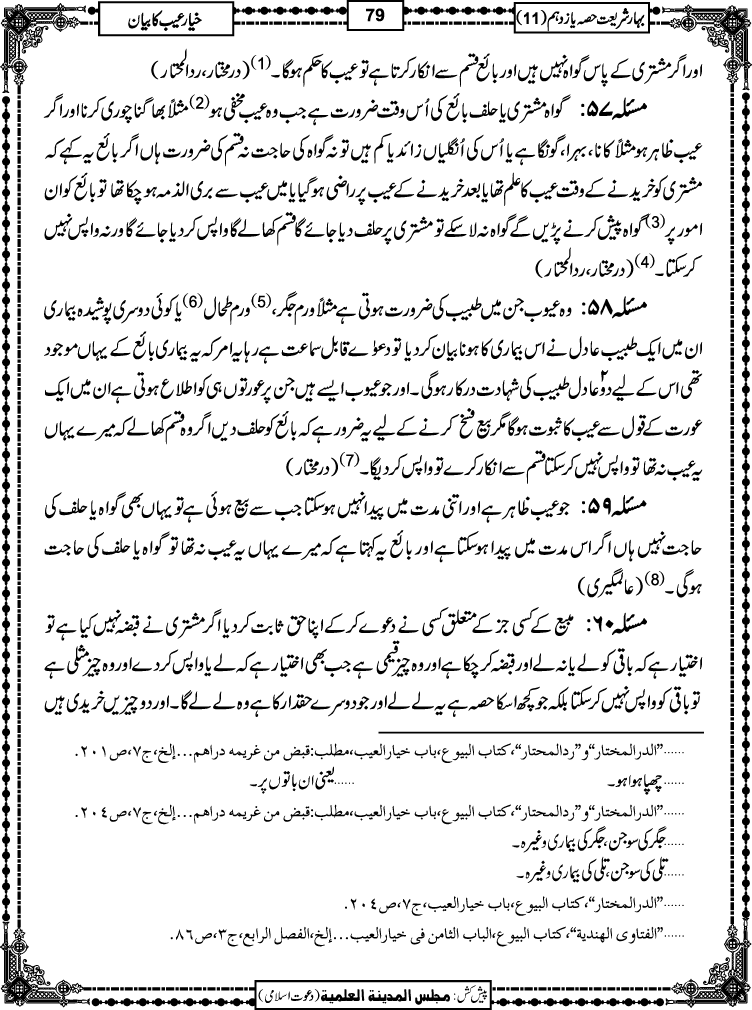 بہارشریعت حصہ یازدہم (11)
79
خیار عیب کا بیان
اور اگر مشتری کے پاس گواہ نہیں ہیں اور بائع قسم سے انکار کرتا ہے تو عیب کا حکم ہوگا۔(1) (درمختار، ردالمحتار)
مسئلہ ۵۷: گواہ مشتری یا حلف بائع کی اُس وقت ضرورت ہے جب وہ عیب مخفی ہو(2) مثلاً بھاگنا چوری کرنا اور اگر
عیب ظاہر ہو مثلاً کانا، بہرا، گونگا ہے یا اُس کی اُنگلیاں زائد یا کم ہیں تو نہ گواہ کی حاجت نہ قسم کی ضرورت ہاں اگر بائع یہ کہے کہ
مشتری کو خریدنے کے وقت عیب کا علم تھا یا بعد خریدنے کے عیب پر راضی ہوگیا یا میں عیب سے بری الذمہ ہوچکا تھا تو بائع کو ان
امور پر(3) گواہ پیش کرنے پڑیں گے گواہ نہ لاسکے تو مشتری پر حلف دیا جائے گا قسم کھالے گا واپس کردیا جائے گا ورنہ واپس نہیں
کرسکتا۔(4) (درمختار، ردالمحتار)
مسئلہ ۵۸: وہ عیوب جن میں طبیب کی ضرورت ہوتی ہے مثلاً ورم جگر،(5) ورم طحال(6) یا کوئی دوسری پوشیدہ بیماری
ان میں ایک طبیب عادل نے اس بیماری کا ہونا بیان کردیا تو دعوٰے قابل سماعت ہے رہا یہ امر کہ یہ بیماری بائع کے یہاں موجود
تھی اس کے لیے دو۲ عادل طبیب کی شہادت درکار ہوگی۔ اور جو عیوب ایسے ہیں جن پر عورتوں ہی کو اطلاع ہوتی ہے ان میں ایک
عورت کے قول سے عیب کا ثبوت ہوگا مگر بیع فسخ کرنے کے لیے یہ ضرور ہے کہ بائع کو حلف دیں اگر وہ قسم کھالے کہ میرے یہاں
یہ عیب نہ تھا تو واپس نہیں کرسکتا قسم سے انکار کرے تو واپس کردیگا۔(7) (درمختار)
مسئلہ ۵۹: جو عیب ظاہر ہے اور اتنی مدت میں پیدا نہیں ہوسکتا جب سے بیع ہوئی ہے تو یہاں بھی گواہ یا حلف کی
حاجت نہیں ہاں اگر اس مدت میں پیدا ہوسکتا ہے اور بائع یہ کہتا ہے کہ میرے یہاں یہ عیب نہ تھا تو گواہ یا حلف کی حاجت
ہوگی۔(8) (عالمگیری)
مسئلہ ۶۰: مبیع کے کسی جز کے متعلق کسی نے دعوے کرکے اپنا حق ثابت کردیا اگر مشتری نے قبضہ نہیں کیا ہے تو
اختیار ہے کہ باقی کو لے یا نہ لے اور قبضہ کرچکا ہے اور وہ چیز قیمی ہے جب بھی اختیار ہے کہ لے یا واپس کردے اور وہ چیز مثلی ہے
تو باقی کو واپس نہیں کرسکتا بلکہ جو کچھ اسکا حصہ ہے یہ لے لے اور جو دوسرے حقدار کا ہے وہ لے لے گا۔ اور دو چیزیں خریدی ہیں
......”الدرالمختار“و”ردالمحتار“،کتاب البیوع،باب خیارالعیب،مطلب:قبض من غریمه دراهم...إلخ،ج۷،ص۲۰۱.
......چھپا ہوا ہو۔ ......یعنی ان باتوں پر۔
......”الدرالمختار“و”ردالمحتار“،کتاب البیوع،باب خیارالعیب،مطلب:قبض من غریمه دراهم...إلخ،ج۷،ص۲۰۴.
......جگر کی سوجن، جگر کی بیماری وغیرہ۔
......تلی کی سوجن، تلی کی بیماری وغیرہ۔
......”الدرالمختار“،کتاب البیوع،باب خیارالعیب،ج۷،ص۲۰۴.
......”الفتاوی الهندیة“،کتاب البیوع،الباب الثامن فی خیارالعیب...إلخ،الفصل الرابع،ج۳،ص۸۶.
پیش کش: مجلس المدینۃ العلمیۃ (دعوت اسلامی)